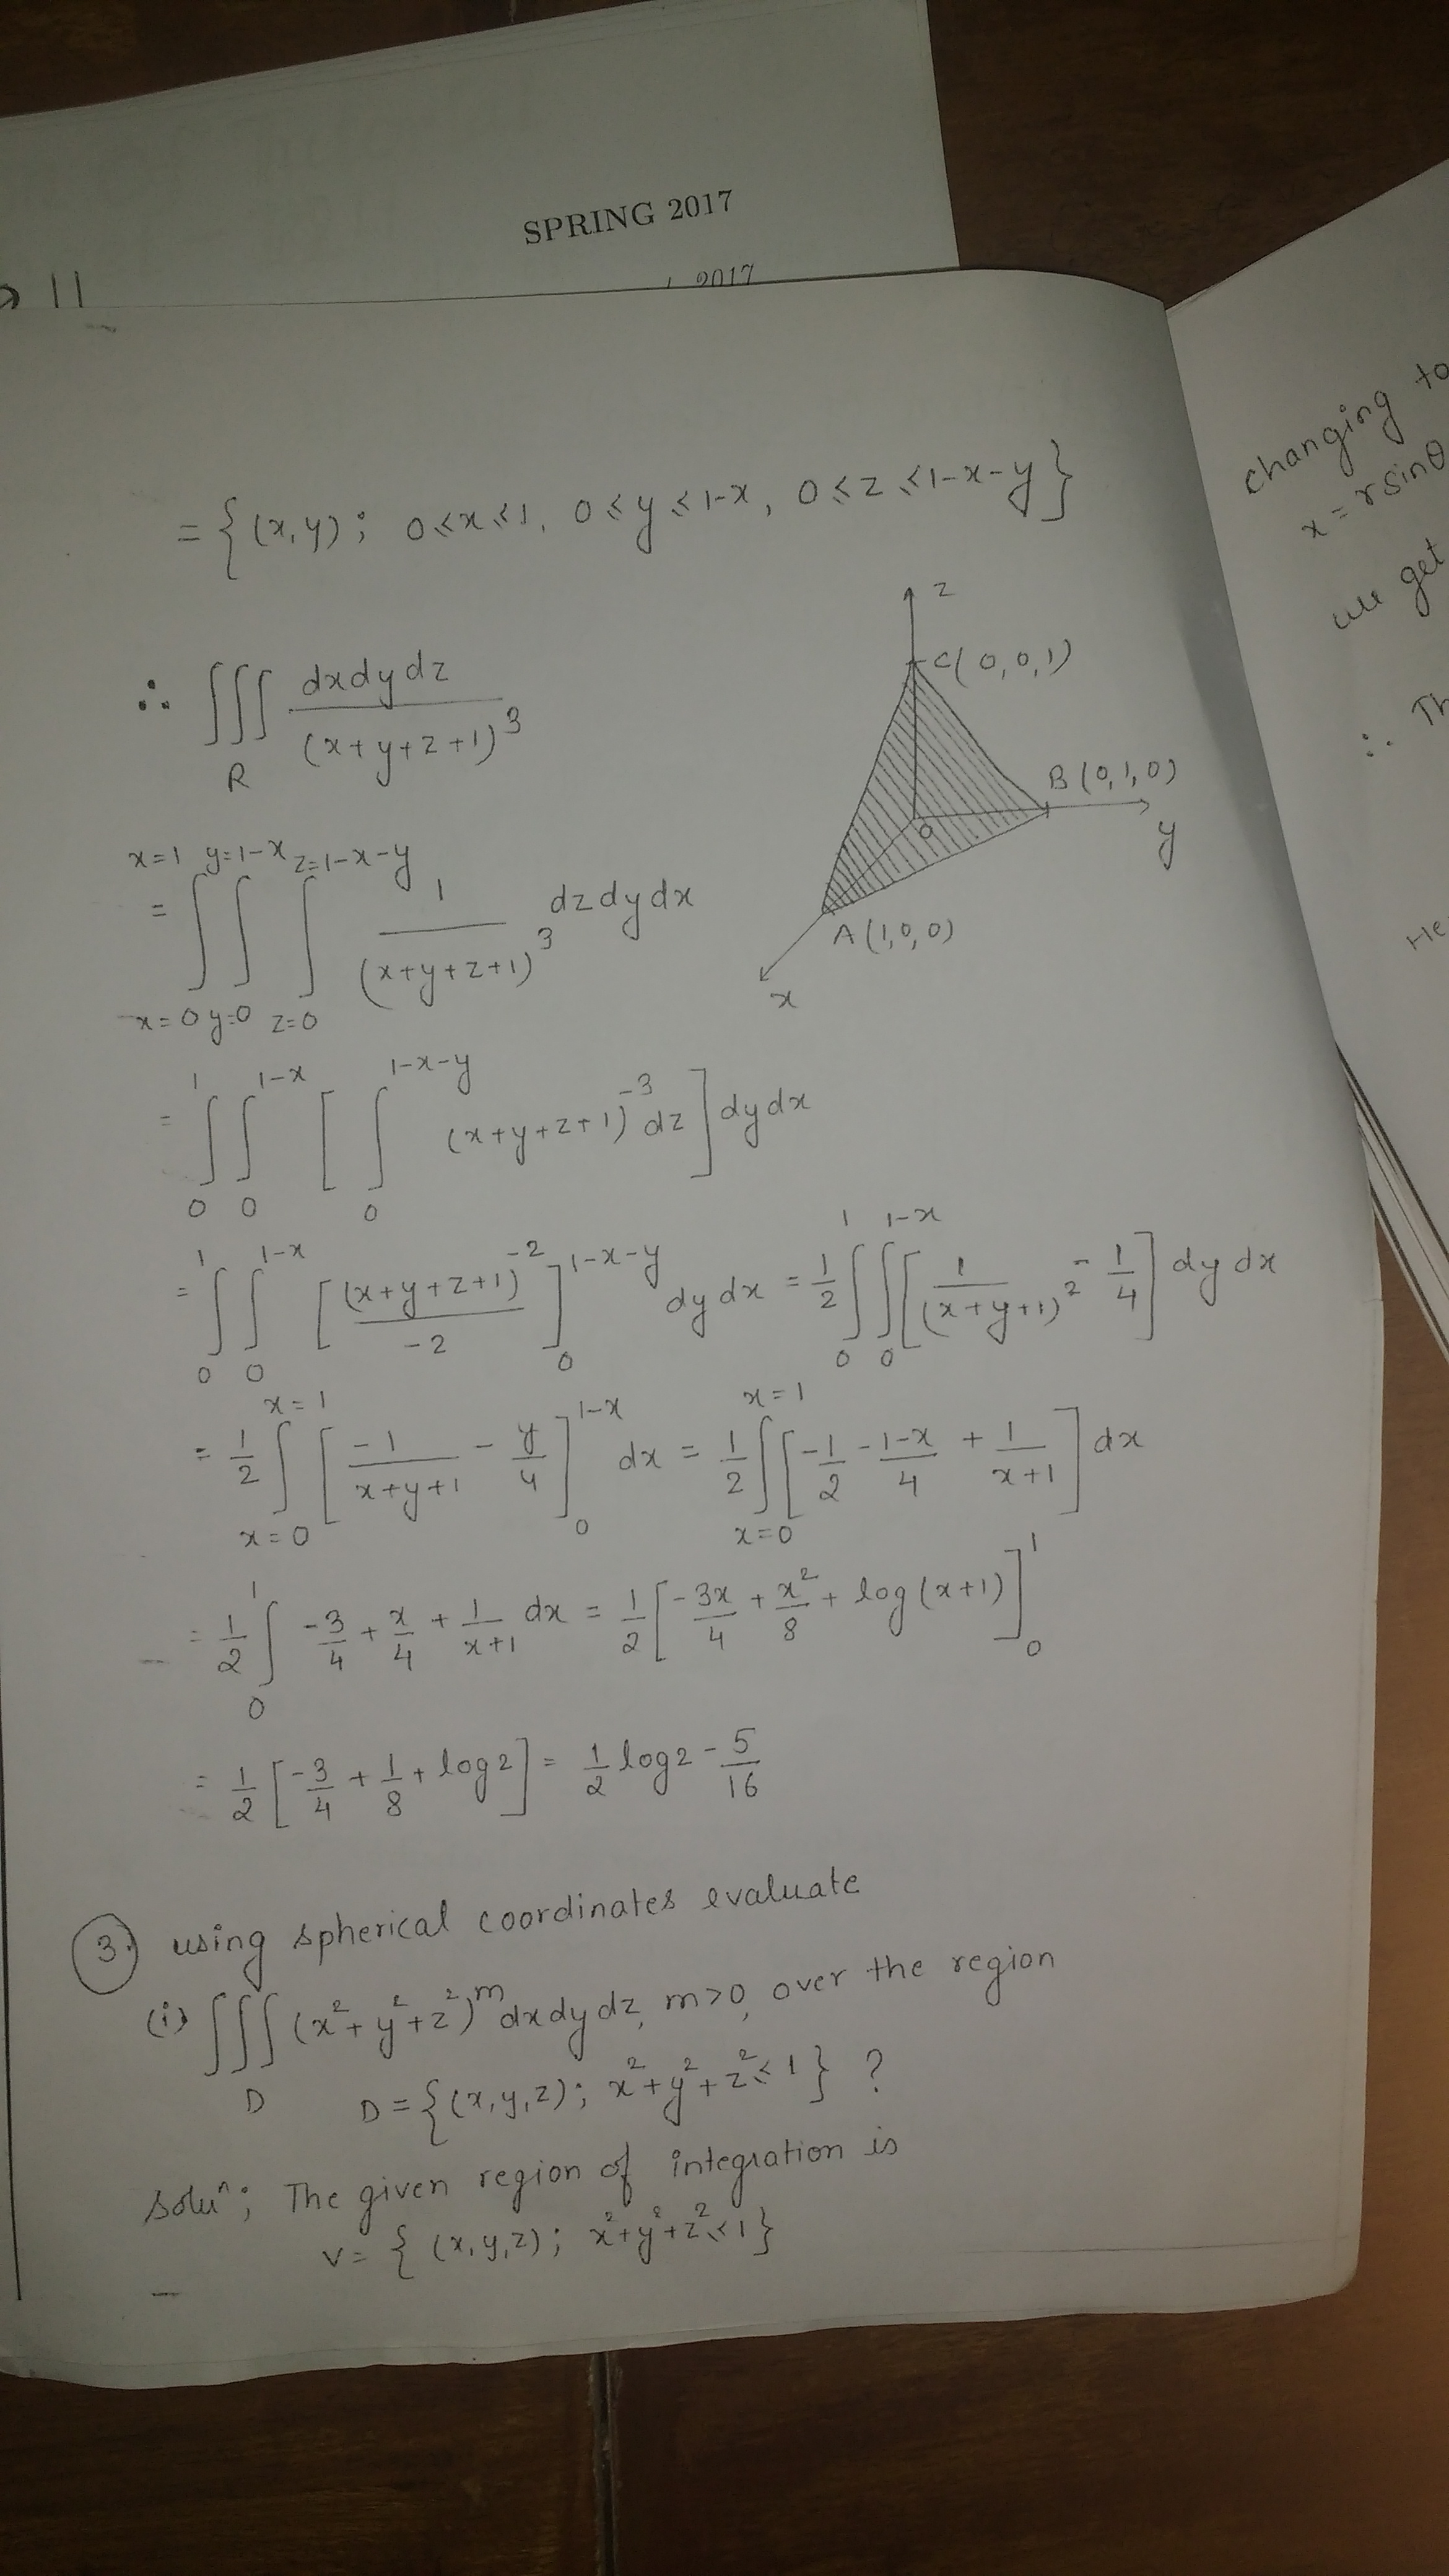 SPRING 2017
2017
11
= {(x,y); 0≤x≤1, 0≤y≤1-x, 0≤z≤1-x-y}
∴ ∭_R dxdydz / (x+y+z+1)^3
z
C(0,0,1)
B(0,1,0)
y
O
A(1,0,0)
x
= ∫_{x=0}^{x=1} ∫_{y=0}^{y=1-x} ∫_{z=0}^{z=1-x-y} 1/(x+y+z+1)^3 dzdydx
= ∫_0^1 ∫_0^{1-x} [ ∫_0^{1-x-y} (x+y+z+1)^{-3} dz ] dydx
= ∫_0^1 ∫_0^{1-x} [ (x+y+z+1)^{-2} / -2 ]_0^{1-x-y} dydx = 1/2 ∫_0^1 ∫_0^{1-x} [ 1/(x+y+1)^2 - 1/4 ] dydx
= 1/2 ∫_{x=0}^{x=1} [ -1/(x+y+1) - y/4 ]_0^{1-x} dx = 1/2 ∫_{x=0}^{x=1} [ -1/2 - (1-x)/4 + 1/(x+1) ] dx
= 1/2 ∫_0^1 -3/4 + x/4 + 1/(x+1) dx = 1/2 [ -3x/4 + x^2/8 + log(x+1) ]_0^1
= 1/2 [ -3/4 + 1/8 + log2 ] = 1/2 log2 - 5/16
3. using spherical coordinates evaluate
(i) ∭_D (x^2+y^2+z^2)^m dxdydz, m>0, over the region
D = {(x,y,z); x^2+y^2+z^2≤1} ?
Solu^n; The given region of integration is
V = { (x,y,z); x^2+y^2+z^2≤1}
changing to
x = r sinθ
we get
∴ Th
He